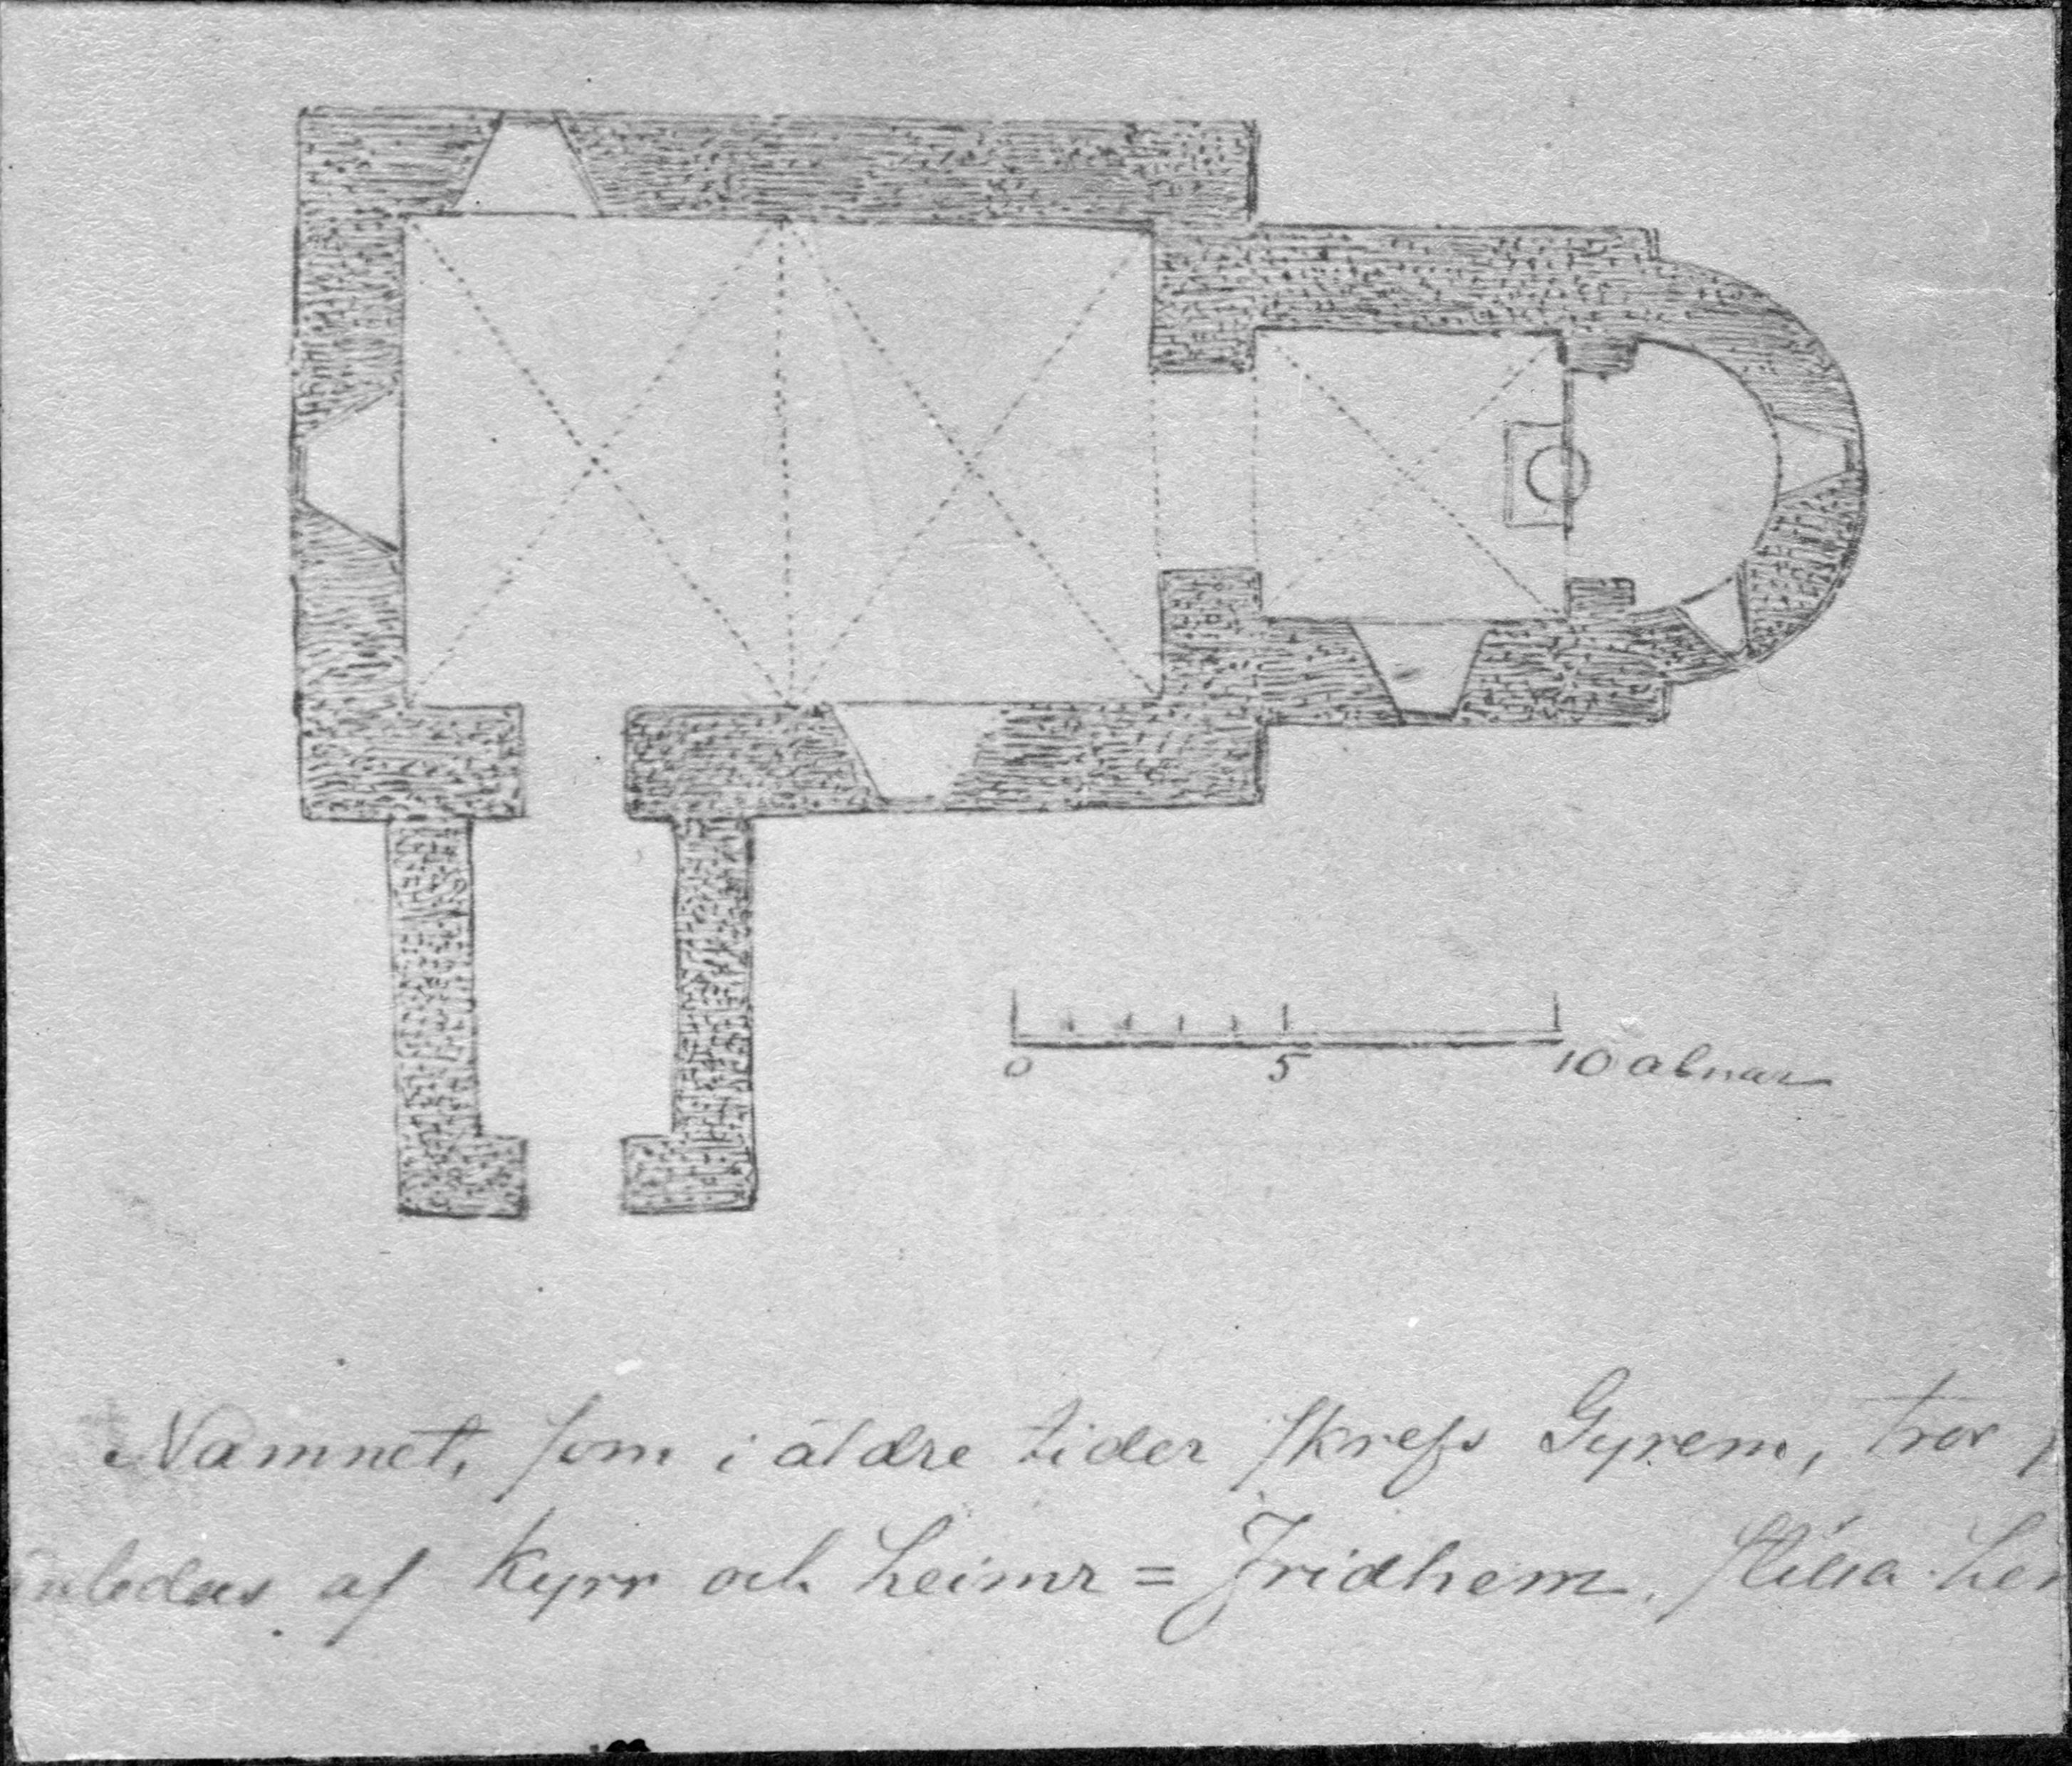 0 5 10 alnar
Namnet, som i äldre tider skrefs Gyrem, tror
af Kyrr och heimr = Fridhem, stilla